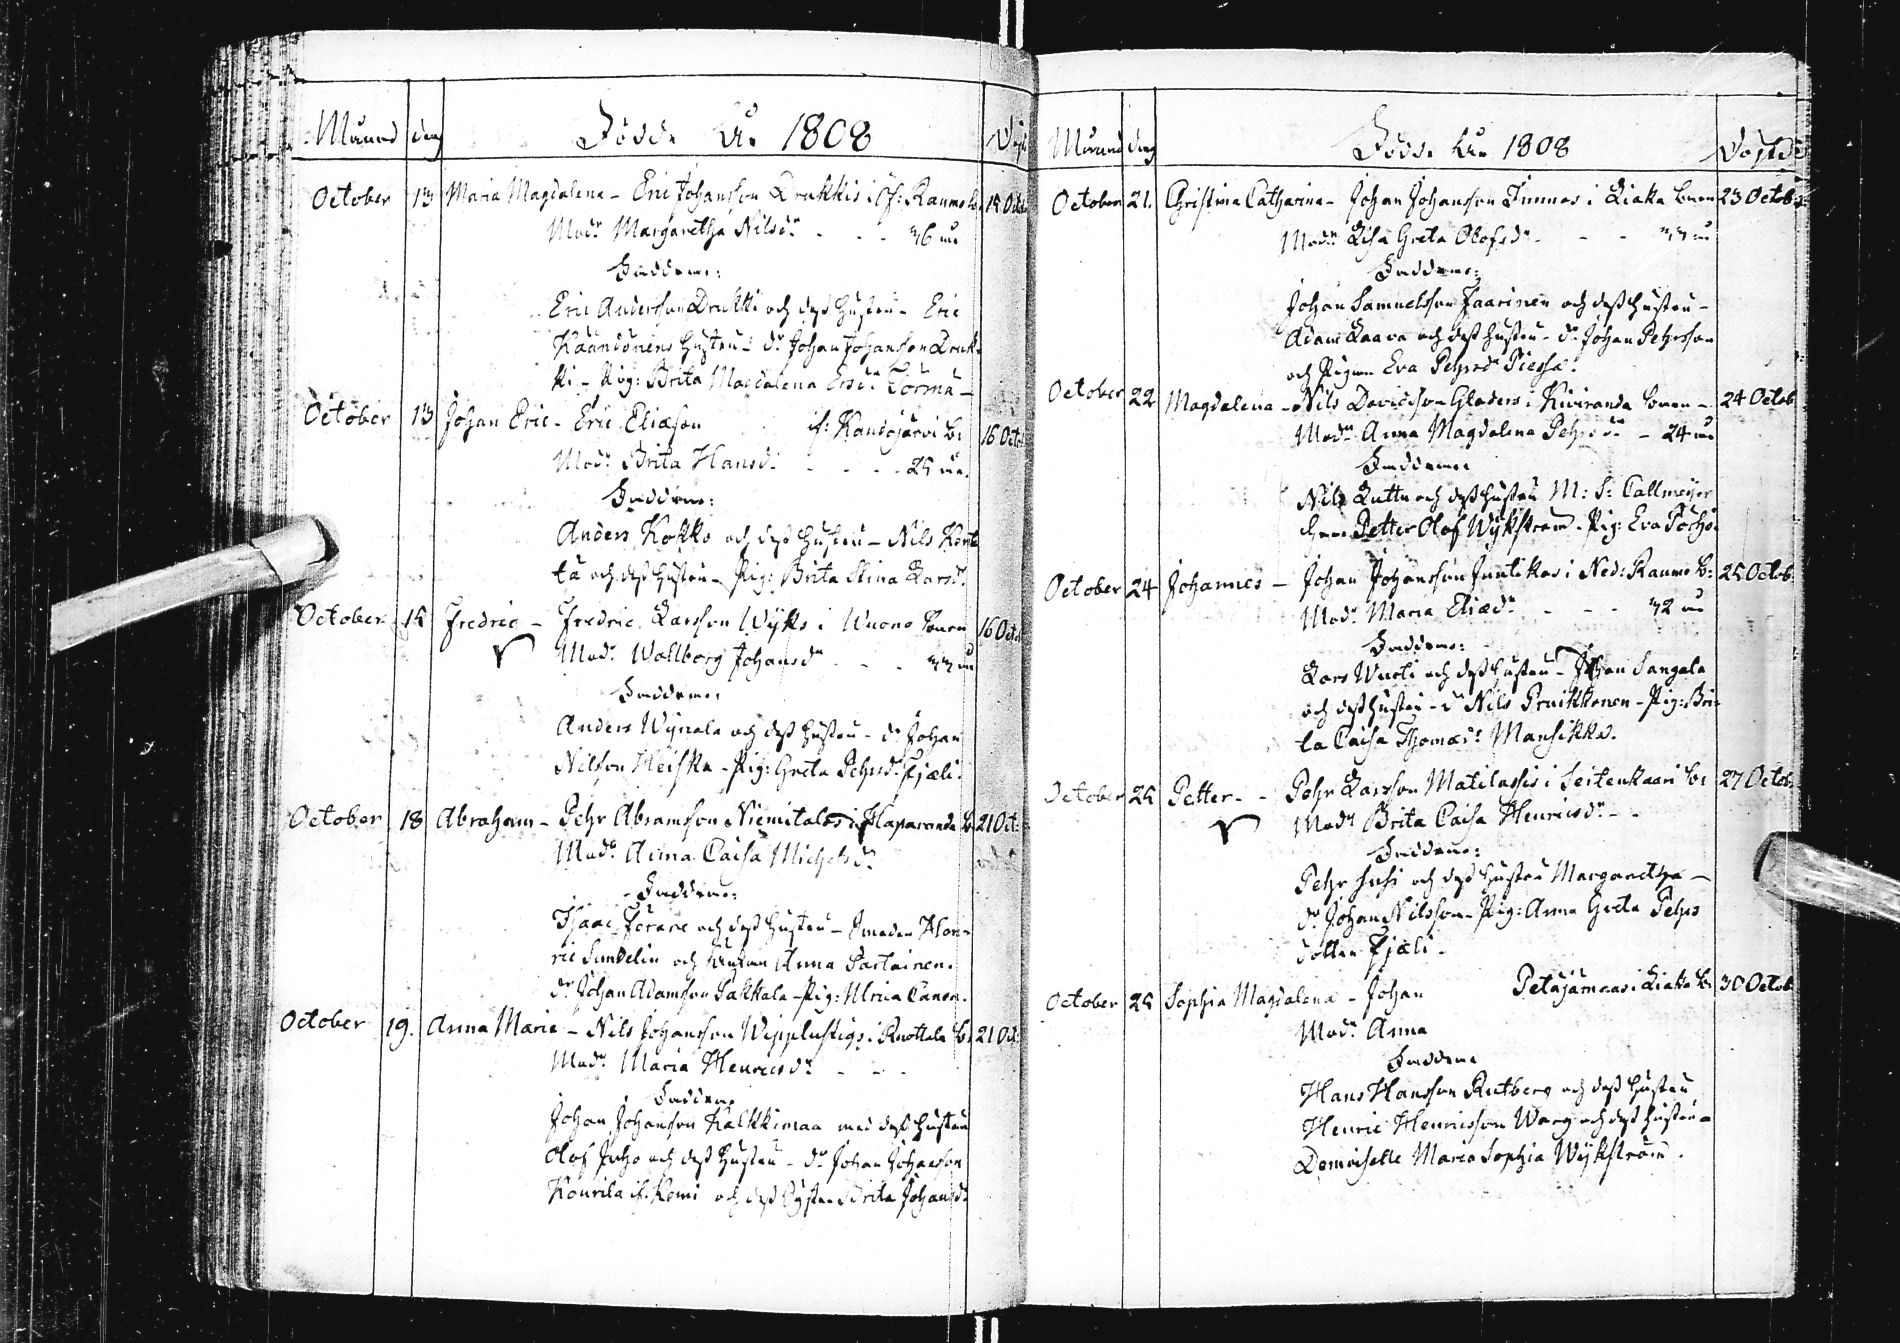 Månad dag Födde År 1808 Döpt
October 13 Maria Magdalena - Eric Johansson Drakkis i Öf: Raumo b. 15 Octo
Modr Margaretha Nilsdr - - - 36 år
Faddrar:
Eric Andersson Drakki och dess hustru - Eric
Kaandonens hustru - dr Johan Johansson Drak-
ki - Pig: Brita Magdalena Ersdr Torma -
October 13 Johan Eric - Eric Eliæson if: Kandojärvi b: 16 Octo
Modr Brita Hansd. - - - 25 år.
Faddrar:
Anders Kokko och dess hustru - Nils
och dess hustru - Pig: Brita Stina Larsd.
October 15 Fredric - Fredric Larsson Wyks i Wuono bӱen 16 Octo
Modr Wallborg Johansdr - - - 33 år
Faddrar:
Anders Wynala och dess hustru - dr Johan
Nilsson Heiska - Pig: Greta Pehrsd. Fjäli.
October 18 Abraham - Pehr Abramsson Niemitalos i Haparanda b 21 Oct:
Modr Anna Caisa Michelsdr
Faddrar:
Isaac Forare och dess hustru - Smeden Hen-
ric Sundelin och Anna Partainen.
dr Johan Adamsson Lakkala - Pig: Ulrica Canon.
October 19. Anna Maria - Nils Johansson i Knottala b: 21 Oct
Modr Maria Henricsdr - - -
Faddrar
Johan Johansson Kalkkimaa med dess hustru
Olof Juho och dess hustru - dr Johan Johansson
Kourila if: Kemi och dess Syster Brita Johansd.
Månad dag Födde År 1808 Döpte
October 21. Christina Catharina - Johan Johansson Innnas i Liaka bӱen 23 Octob:
Modr Lisa Greta Olofsdr - - - 33 år
Faddrar:
Johan Samuelsson Jaarinen och dess hustru -
Adam Laava och dess hustru - dr Johan Pehrsson
och Pigan Eva Pehrsdr Piessa.
October 22 Magdalena - Nils Davidsson Gladers i Kiviranda bӱen - 24 Octob
Modr Anna Magdalena Pehrsdr - 24 år
Faddrar
Nils Kuttu och dess hustru M: S: Callmeyer
Herr Petter Olof Wykström - Pig: Eva
October 24 Johannes - Johan Johansson Juntikas i Ned: Raumo b: 25 Octob.
Modr Maria Eliædr - - - 32 år
Faddrar:
Lars Wuoti och dess hustru - Johan Sangala
och dess hustru - dr Nils Pruikkonen - Pig: Bri-
ta Caisa Thomædr Mansikka.
October 25 Petter - - Pehr Larsson Matilassis i Seitenkaari b: 27 Octob:
Modr Brita Caisa Henricsdr - -
Faddrar:
Pehr Susi och dess hustru Margaretha -
dr Johan Nilsson - Pig: Anna Greta Pehrs
dotter Fjäli.
October 25 Sophia Magdalena - Johan Petäjämaas i Liaka b: 30 Octob
Modr Anna
Faddrar
Hans Hansson Rutberg och dess hustru
Henric Henricsson Warg och dess hustru -
Demoiselle Maria Sophia Wykström.